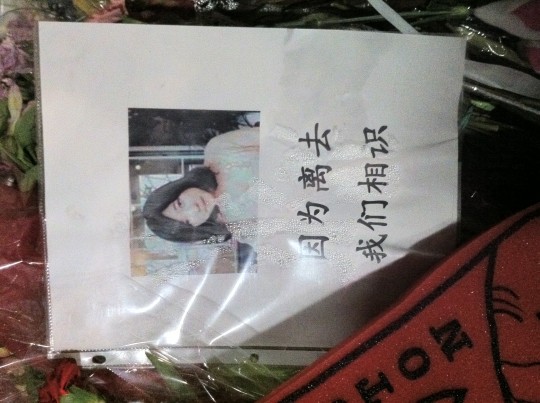 因为离去
我们相识